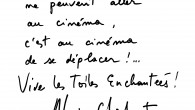 ne peuvent aller
au cinéma,
c'est au cinéma
de se déplacer !...
Vive les Toiles Enchantées !